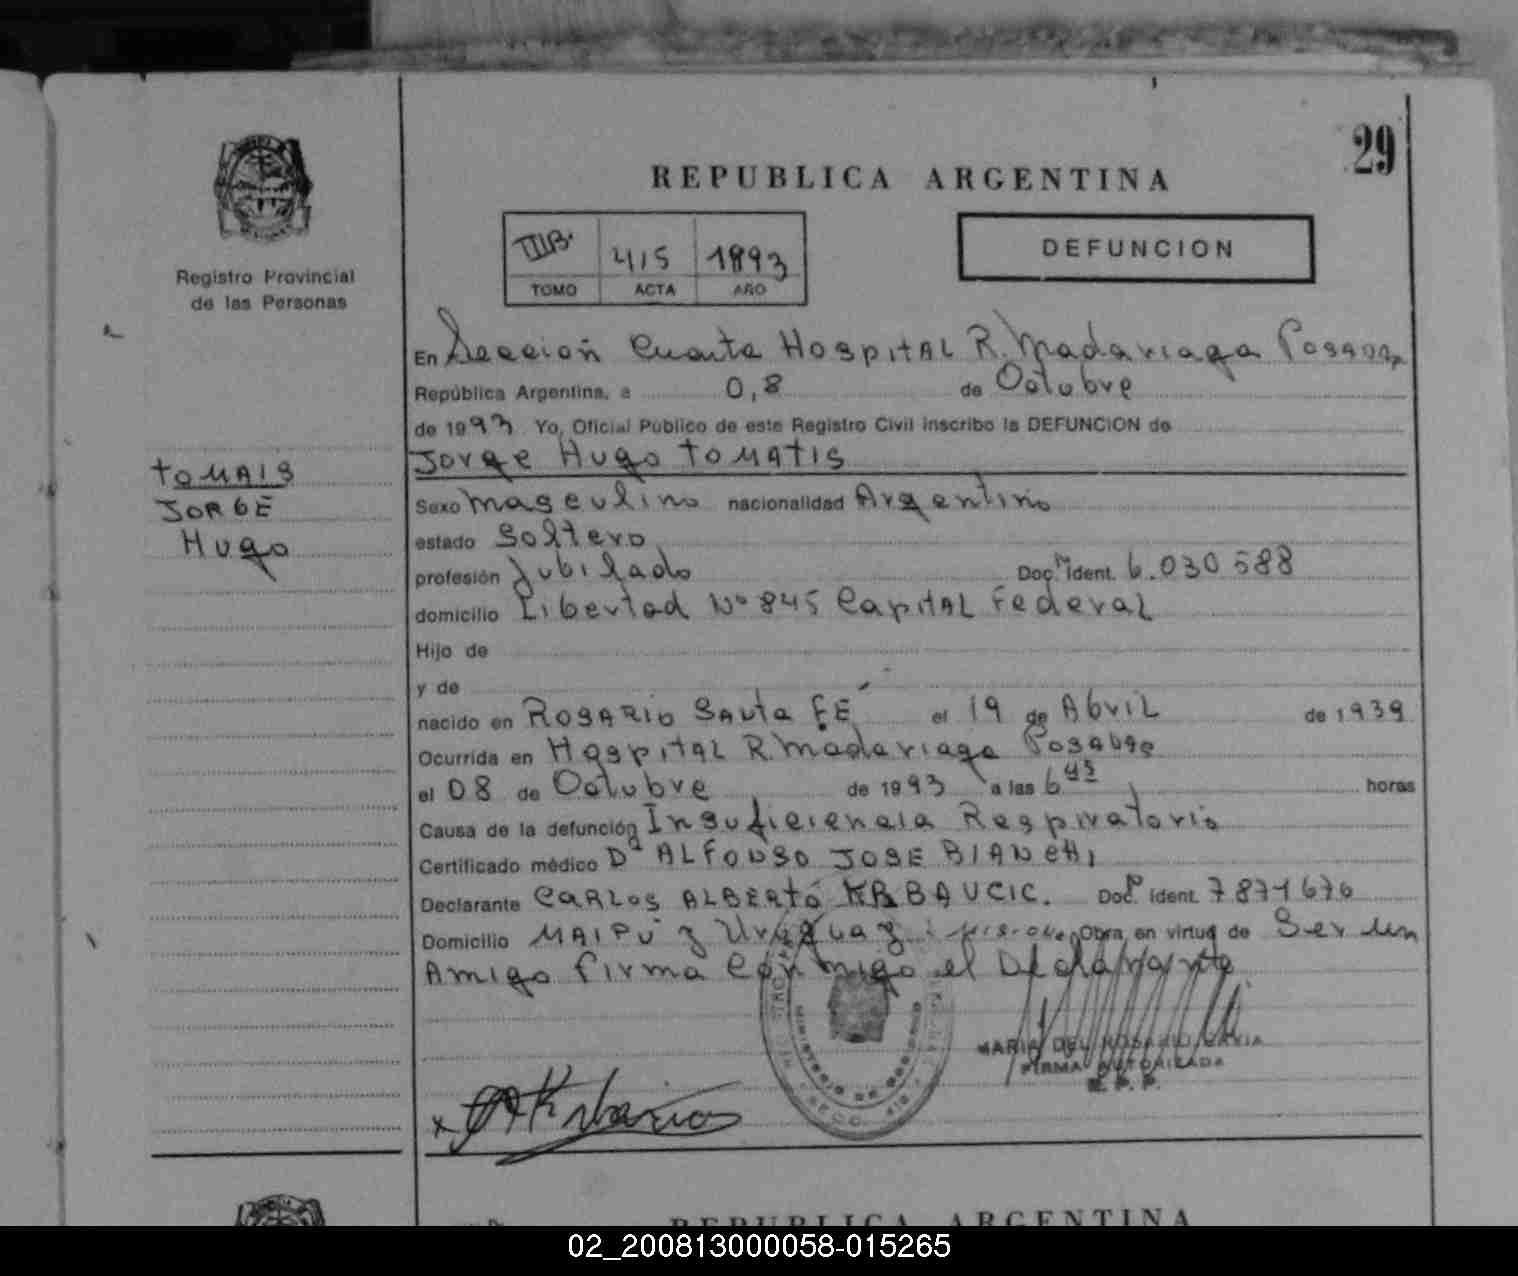 29
REPUBLICA ARGENTINA
Registro Provincial
de las Personas
IIIB. 415 1893
TOMO ACTA AÑO
DEFUNCION
En Sección Cuarta Hospital R. Madariaga Posadas
República Argentina, a 0,8 de Octubre
de 1993 Yo, Oficial Público de este Registro Civil inscribo la DEFUNCION de
Jorge Hugo TOMATIS
TOMAIS
JORGE
Hugo
Sexo masculino nacionalidad Argentino
estado Soltero
profesión Jubilado Doc. ident. 6.030588
domicilio Libertad Nº 845 Capital Federal
Hijo de
y de
nacido en ROSARIO Santa FÉ el 19 de Abril de 1939
Ocurrida en Hospital R. Madariaga Posadas
el 08 de Octubre de 1993 a las 6 45 horas
Causa de la defunción Insuficiencia Respiratoria
Certificado médico Dª ALFONSO JOSE BIANCHI
Declarante CARLOS ALBERTO KRBAUCIC. Doc. ident. 7871676
Domicilio MAIPU y Uruguay Obra en virtud de Ser un
Amigo firma conmigo el Declarante
MINISTERIO DE GOBIERNO
MARIA DEL ROSARIO
FIRMA AUTORIZADA
R. P. P.
REPUBLICA ARGENTINA
02_200813000058-015265